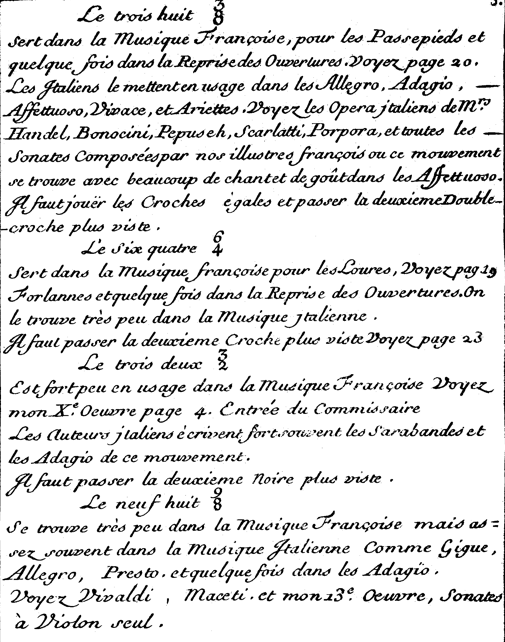 3.
Le trois huit 3/8
Sert dans la Musique Françoise, pour les Passepieds et
quelque fois dans la Reprise des Ouvertures. Voyez page 20.
Les Italiens le mettent en usage dans les Allegro, Adagio,
Affettuoso, Vivace, et Ariettes. Voyez les Opera jtaliens de Mrs
Handel, Bonocini, Pepuseh, Scarlatti, Porpora, et toutes les
Sonates Composées par nos illustres françois ou ce mouvement
se trouve avec beaucoup de chant et de goût dans les Affettuoso.
Il faut jouër les Croches égales et passer la deuxieme Double-
croche plus viste.
Le Six quatre 6/4
Sert dans la Musique françoise pour les Loures, Voyez pag 19
Forlannes et quelque fois dans la Reprise des Ouvertures. On
le trouve très peu dans la Musique jtalienne.
Il faut passer la deuxieme Croche plus viste Voyez page 23
Le trois deux 3/2
Est fort peu en usage dans la Musique Françoise Voyez
mon Xe. Oeuvre page 4. Entrée du Commissaire
Les Auteurs jtaliens écrivent fort souvent les Sarabandes et
les Adagio de ce mouvement.
Il faut passer la deuxieme Noire plus viste.
Le neuf huit 9/8
Se trouve très peu dans la Musique Françoise mais as=
sez souvent dans la Musique Italienne Comme Gigue,
Allegro, Presto. et quelque fois dans les Adagio.
Voyez Vivaldi, Maceti. et mon 13e. Oeuvre, Sonates
à Violon seul.